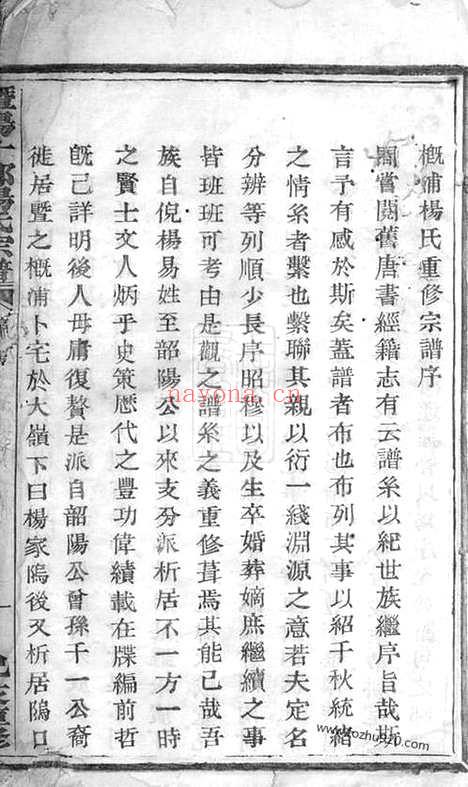 概浦楊氏重修宗譜序
閒嘗閱舊唐書經籍志有云譜系以紀世族繼序旨哉斯
言予有感於斯矣蓋譜者布也布列其事以紹千秋統緒
之情系者繫也繫聯其親以衍一綫淵源之意若夫定名
分辨等列順少長序昭穆以及生卒婚葬嫡庶繼續之事
皆班班可考由是觀之譜系之義重修葺焉其能已哉吾
族自倪楊易姓至韶陽公以來支分派析居不一方一時
之賢士文人炳乎史策歷代之豐功偉績載在牒編前哲
既已詳明後人毋庸復贅是派自韶陽公曾孫千一公裔
徙居暨之概浦卜宅於大嶺下曰楊家隖後又析居隖口
暨陽楊氏宗譜
重修
nayona.cn
www.tczhu520.com